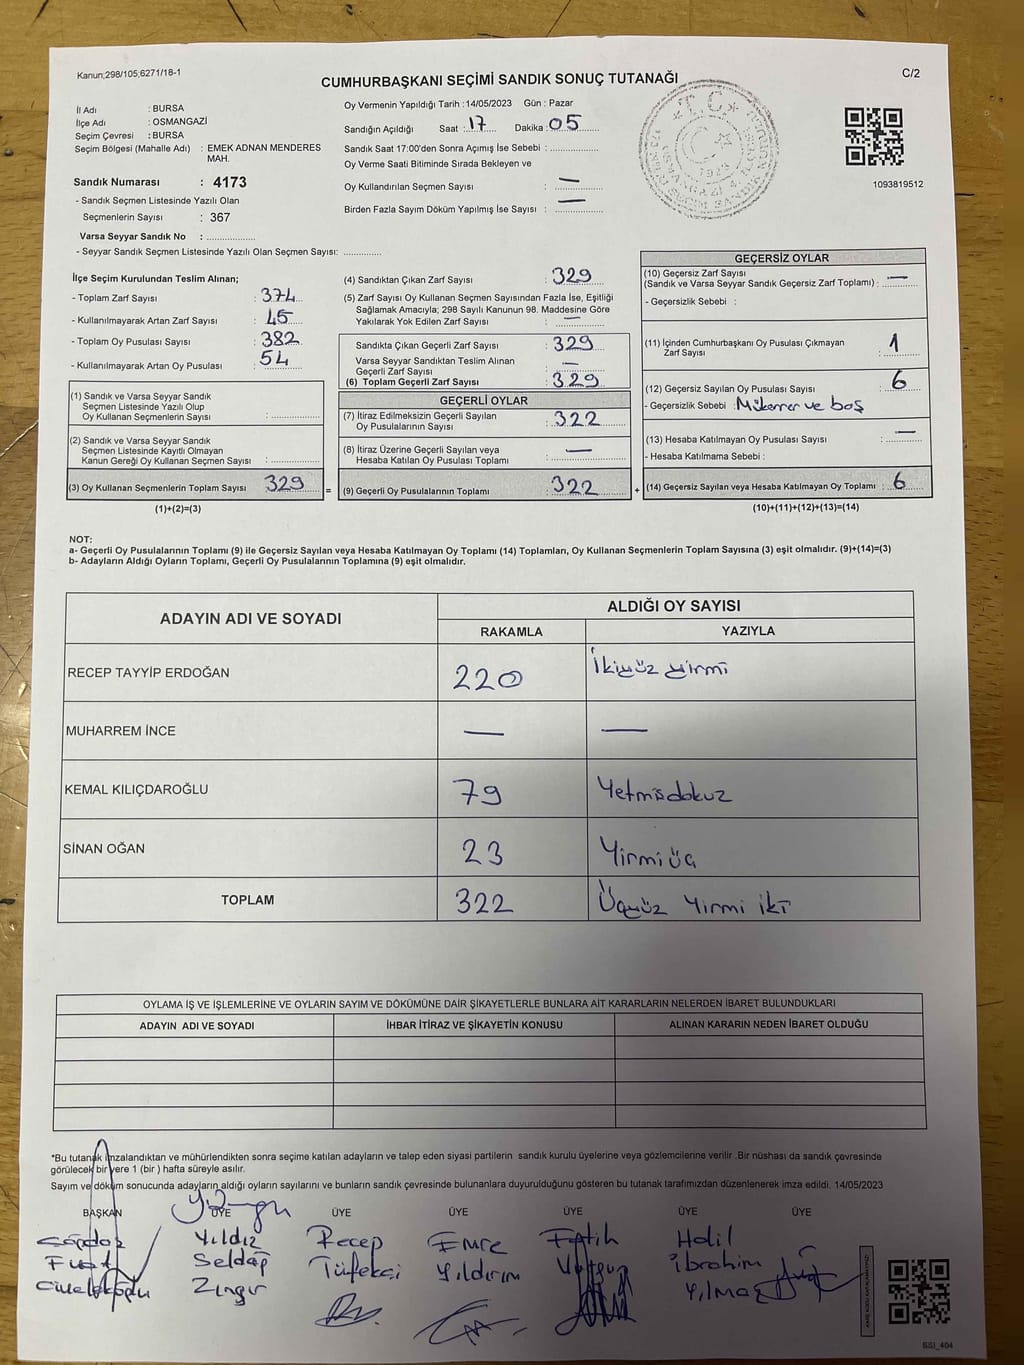 Kanun;298/105;6271/18-1
CUMHURBAŞKANI SEÇİMİ SANDIK SONUÇ TUTANAĞI
C/2
İl Adı : BURSA
İlçe Adı : OSMANGAZİ
Seçim Çevresi : BURSA
Seçim Bölgesi (Mahalle Adı) : EMEK ADNAN MENDERES
MAH.
Sandık Numarası : 4173
- Sandık Seçmen Listesinde Yazılı Olan
Seçmenlerin Sayısı : 367
Varsa Seyyar Sandık No :
- Seyyar Sandık Seçmen Listesinde Yazılı Olan Seçmen Sayısı:
Oy Vermenin Yapıldığı Tarih : 14/05/2023 Gün : Pazar
Sandığın Açıldığı Saat : 17 Dakika : 05
Sandık Saat 17:00'den Sonra Açımış İse Sebebi :
Oy Verme Saati Bitiminde Sırada Bekleyen ve
Oy Kullandırılan Seçmen Sayısı : —
Birden Fazla Sayım Döküm Yapılmış İse Sayısı : —
T.C.
1923
1093819512
İlçe Seçim Kurulundan Teslim Alınan;
- Toplam Zarf Sayısı : 374
- Kullanılmayarak Artan Zarf Sayısı : 45
- Toplam Oy Pusulası Sayısı : 382
- Kullanılmayarak Artan Oy Pusulası : 54
(1) Sandık ve Varsa Seyyar Sandık
Seçmen Listesinde Yazılı Olup
Oy Kullanan Seçmenlerin Sayısı :
(2) Sandık ve Varsa Seyyar Sandık
Seçmen Listesinde Kayıtlı Olmayan
Kanun Gereği Oy Kullanan Seçmen Sayısı :
(3) Oy Kullanan Seçmenlerin Toplam Sayısı : 329
(1)+(2)=(3)
=
(4) Sandıktan Çıkan Zarf Sayısı : 329
(5) Zarf Sayısı Oy Kullanan Seçmen Sayısından Fazla İse, Eşitliği
Sağlamak Amacıyla; 298 Sayılı Kanunun 98. Maddesine Göre
Yakılarak Yok Edilen Zarf Sayısı : —
Sandıkta Çıkan Geçerli Zarf Sayısı : 329
Varsa Seyyar Sandıktan Teslim Alınan
Geçerli Zarf Sayısı : —
(6) Toplam Geçerli Zarf Sayısı : 329
GEÇERLİ OYLAR
(7) İtiraz Edilmeksizin Geçerli Sayılan
Oy Pusulalarının Sayısı : 322
(8) İtiraz Üzerine Geçerli Sayılan veya
Hesaba Katılan Oy Pusulası Toplamı : —
(9) Geçerli Oy Pusulalarının Toplamı : 322
+
GEÇERSİZ OYLAR
(10) Geçersiz Zarf Sayısı
(Sandık ve Varsa Seyyar Sandık Geçersiz Zarf Toplamı) : —
- Geçersizlik Sebebi :
(11) İçinden Cumhurbaşkanı Oy Pusulası Çıkmayan
Zarf Sayısı : 1
(12) Geçersiz Sayılan Oy Pusulası Sayısı : 6
- Geçersizlik Sebebi : Mükerrer ve boş
(13) Hesaba Katılmayan Oy Pusulası Sayısı : —
- Hesaba Katılmama Sebebi :
(14) Geçersiz Sayılan veya Hesaba Katılmayan Oy Toplamı : 6
(10)+(11)+(12)+(13)=(14)
NOT:
a- Geçerli Oy Pusulalarının Toplamı (9) ile Geçersiz Sayılan veya Hesaba Katılmayan Oy Toplamı (14) Toplamları, Oy Kullanan Seçmenlerin Toplam Sayısına (3) eşit olmalıdır. (9)+(14)=(3)
b- Adayların Aldığı Oyların Toplamı, Geçerli Oy Pusulalarının Toplamına (9) eşit olmalıdır.
ADAYIN ADI VE SOYADI
ALDIĞI OY SAYISI
RAKAMLA YAZIYLA
RECEP TAYYİP ERDOĞAN 220 İkiyüz yirmi
MUHARREM İNCE — —
KEMAL KILIÇDAROĞLU 79 Yetmişdokuz
SİNAN OĞAN 23 Yirmi üç
TOPLAM 322 Üçyüz Yirmi iki
OYLAMA İŞ VE İŞLEMLERİNE VE OYLARIN SAYIM VE DÖKÜMÜNE DAİR ŞİKAYETLERLE BUNLARA AİT KARARLARIN NELERDEN İBARET BULUNDUKLARI
ADAYIN ADI VE SOYADI İHBAR İTİRAZ VE ŞİKAYETİN KONUSU ALINAN KARARIN NEDEN İBARET OLDUĞU
*Bu tutanak imzalandıktan ve mühürlendikten sonra seçime katılan adayların ve talep eden siyasi partilerin sandık kurulu üyelerine veya gözlemcilerine verilir .Bir nüshası da sandık çevresinde
görülecek bir yere 1 (bir ) hafta süreyle asılır.
Sayım ve döküm sonucunda adayların aldığı oyların sayılarını ve bunların sandık çevresinde bulunanlara duyurulduğunu gösteren bu tutanak tarafımızdan düzenlenerek imza edildi. 14/05/2023
BAŞKAN ÜYE ÜYE ÜYE ÜYE ÜYE ÜYE
Yıldız Recep Emre Fatih Halil
Fuat Seldağ Tüfekçi Yıldırım İbrahim
Zıngır Yılmaz
SSİ_404